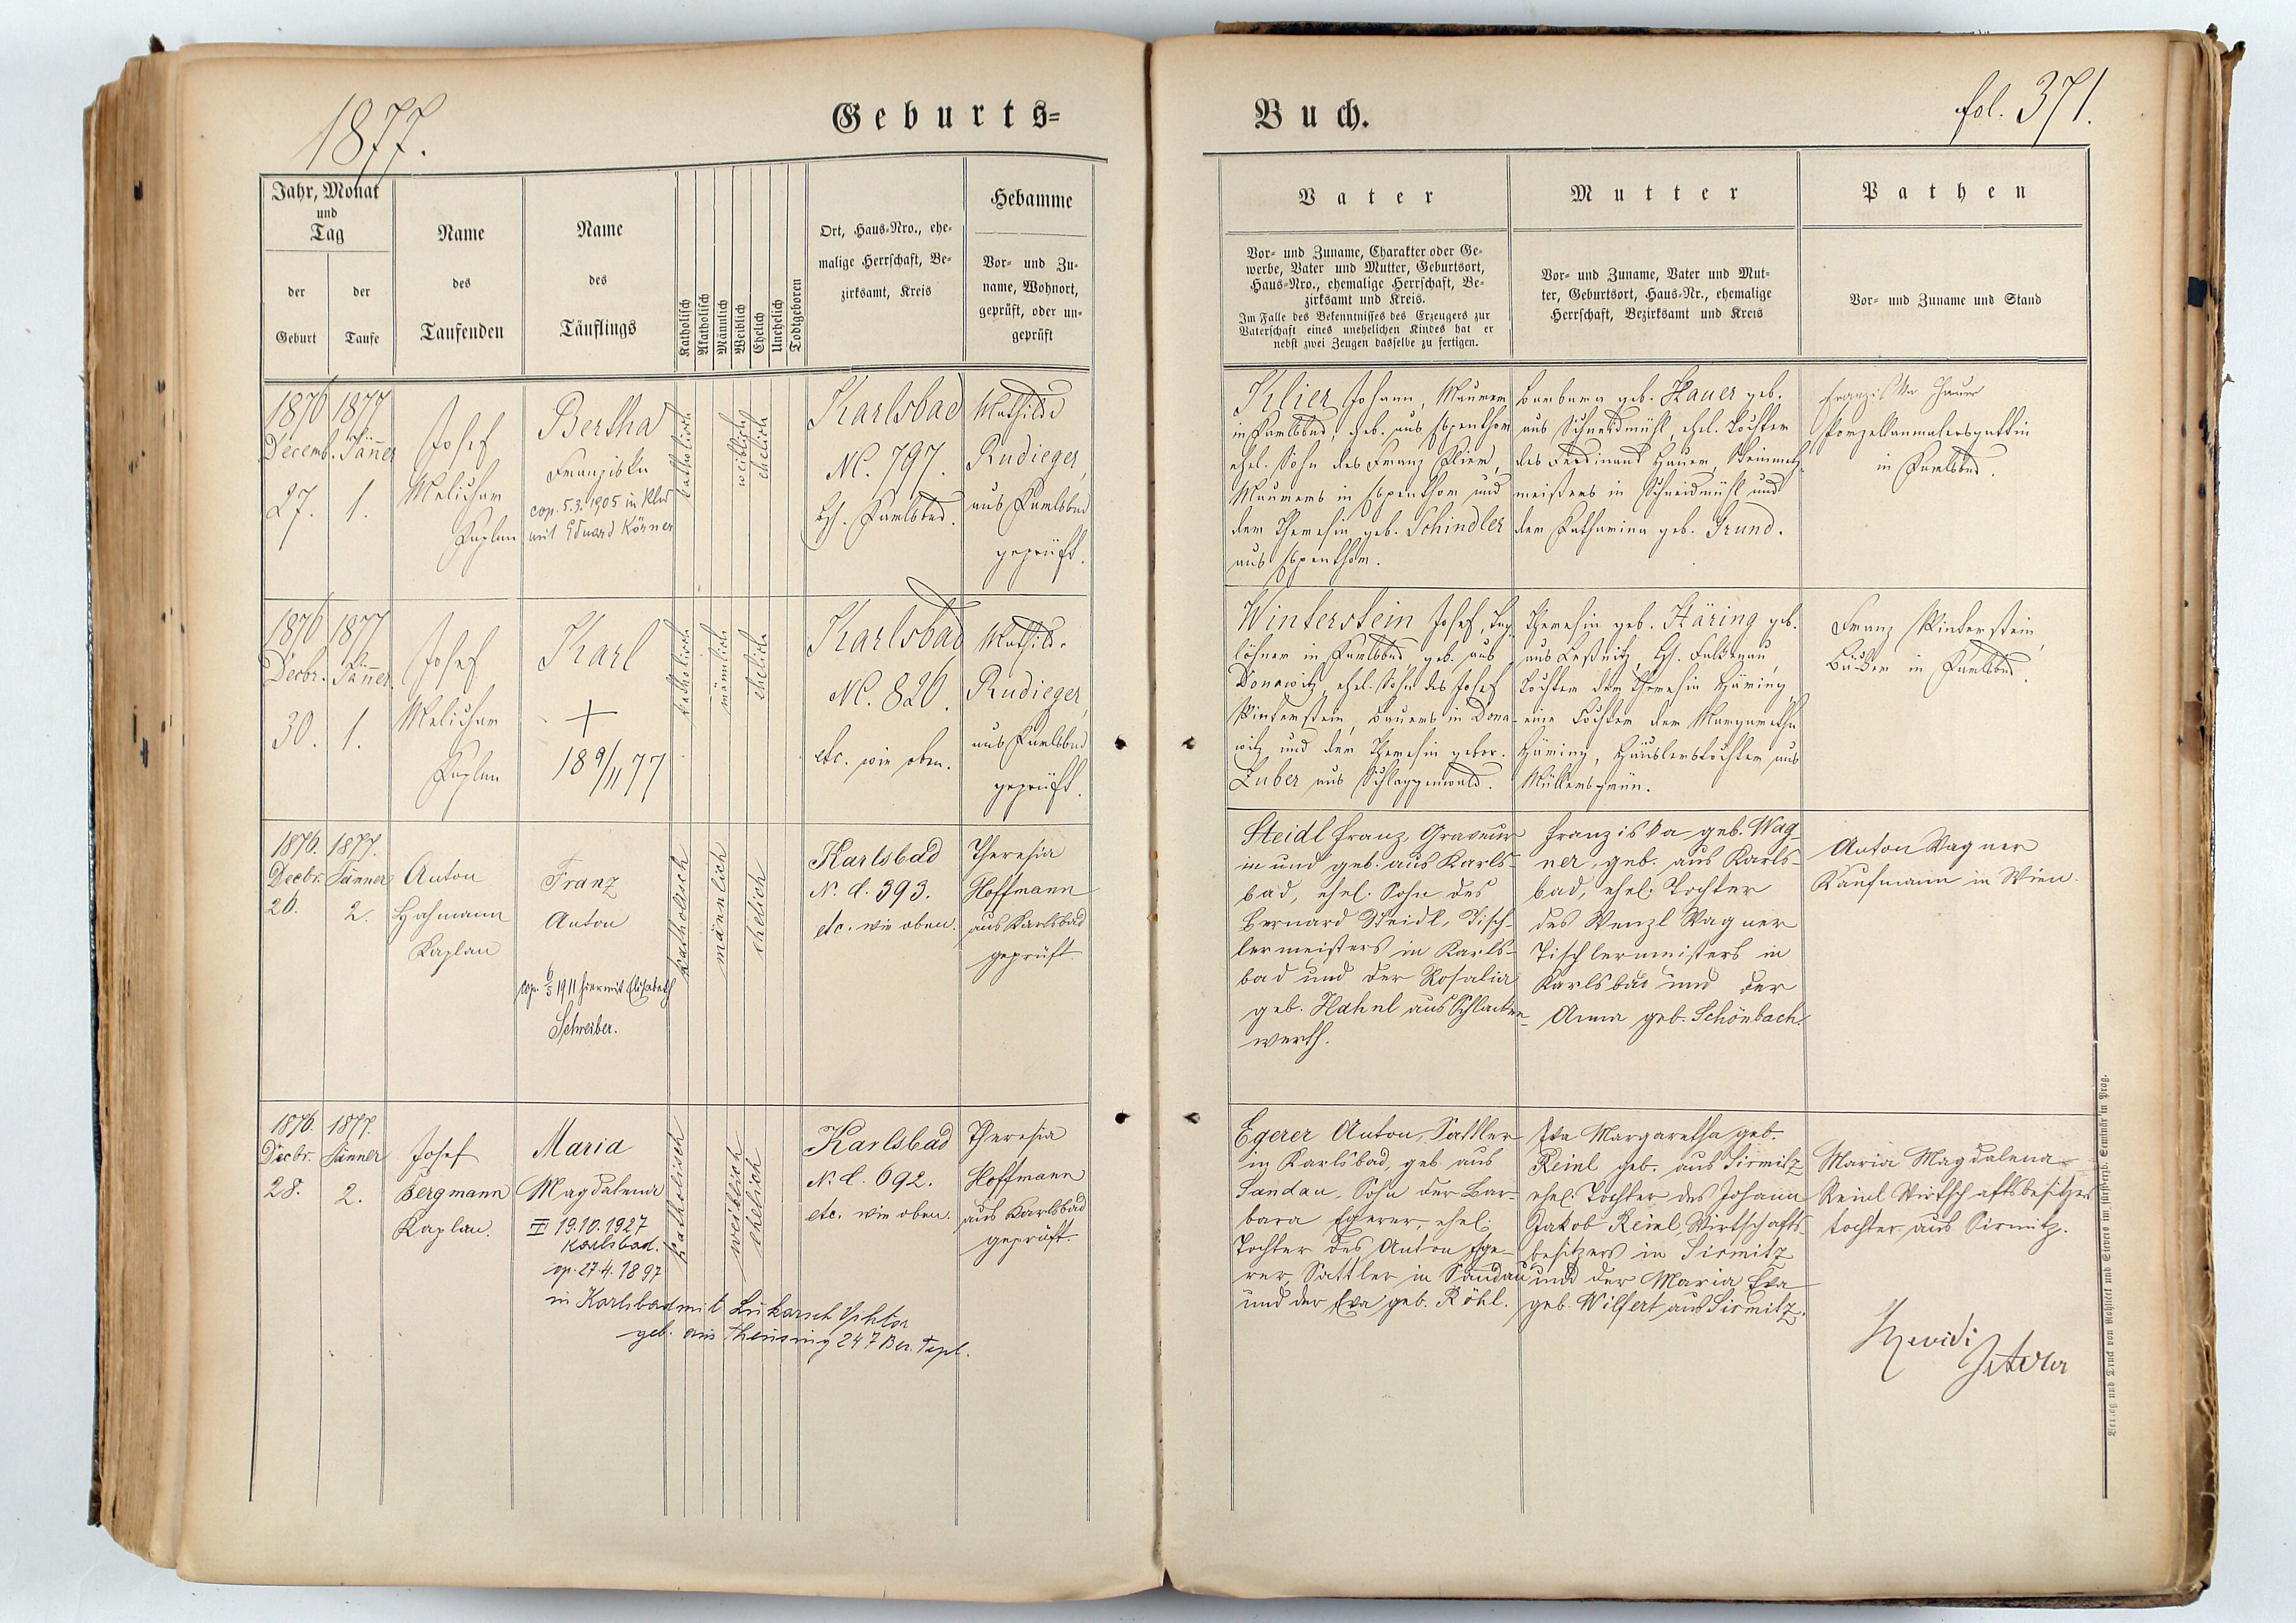 1877.
Geburts=
Buch.
fol. 371.
Jahr, Monat
und
Tag
der
Geburt
der
Taufe
Name
des
Taufenden
Name
des
Täuflings
Katholisch
Akatholisch
Männlich
Weiblich
Ehelich
Unehelich
Todtgeboren
Ort, Haus-Nro., ehe-
malige Herrschaft, Be-
zirksamt, Kreis
Hebamme
Vor- und Zu-
name, Wohnort,
geprüft, oder un-
geprüft
Vater
Vor- und Zuname, Charakter oder Ge-
werbe, Vater und Mutter, Geburtsort,
Haus-Nro., ehemalige Herrschaft, Be-
zirksamt und Kreis.
Im Falle des Bekenntnisses des Erzeugers zur
Vaterschaft eines unehelichen Kindes hat er
nebst zwei Zeugen dasselbe zu fertigen.
Mutter
Vor- und Zuname, Vater und Mut-
ter, Geburtsort, Haus-Nr., ehemalige
Herrschaft, Bezirksamt und Kreis
Pathen
Vor- und Zuname und Stand
1876
Decemb.
27.
1877
Jänner
1.
Josef
Melichar
Kaplan
Bertha
Franziska
cop. 5.3.1905 in
mit Eduard Körner
katholisch
weiblich
ehelich
Karlsbad
N. 797.
Bz. Karlsbad.
Mathilde
Rudieger,
aus Karlsbad
geprüft.
Klier Johann, Maurer
in Karlsbad, geb. aus Espenthor
ehel. Sohn des Franz Klier,
Maurers in Espenthor und
der Theresia geb. Schindler
aus Espenthor.
Barbara geb. Hauer geb.
aus Schneidmühl, ehel. Tochter
des Ferdinand Hauer, Steinmetz-
meisters in Schneidmühl und
der Katharina geb. Grund.
Franziska Hauer
Porzellanmalersgattin
in Karlsbad.
1876
Decbr.
30.
1877
Jänner
1.
Josef
Melichar
Kaplan
Karl
+
18 9/11 77
katholisch
männlich
ehelich
Karlsbad
N. 826.
etc. wie oben.
Mathilde
Rudieger,
aus Karlsbad
geprüft.
Winterstein Josef, Tag-
löhner in Karlsbad, geb. aus
Donawitz, ehel. Sohn des Josef
Winterstein, Bauers in Dona-
witz und der Theresia gebor.
Luber aus Schlaggenwald.
Theresia geb. Häring geb.
aus Leßnitz, Bz. Falkenau,
Tochter der Theresia Häring,
eine Tochter der Margaretha
Häring, Häuslerstochter aus
Müllersgrün.
Franz Winterstein,
Bäcker in Karlsbad.
1876.
Decbr.
26.
1877.
Jänner
2.
Anton
Hahmann
Kaplan
Franz
Anton
cop. 6/5 1911 hier mit Elisabeth
Schreiber.
katholisch
männlich
ehelich
Karlsbad
N. C. 393.
etc. wie oben.
Theresia
Hoffmann
aus Karlsbad
geprüft
Steidl Franz, Graveur
in und geb. aus Karls-
bad, ehel. Sohn des
Bernard Steidl, Tisch-
lermeisters in Karls-
bad und der Rosalia
geb. Hahnl aus Schlacken-
werth.
Franziska geb. Wag-
ner, geb. aus Karls-
bad, ehel. Tochter
des Wenzl Wagner
Tischlermeisters in
Karlsbad und der
Anna geb. Schönbach.
Anton Wagner
Kaufmann in Wien.
1876.
Decbr.
28.
1877.
Jänner
2.
Josef
Bergmann
Kaplan.
Maria
Magdalena
19.10.1927
Karlsbad.
cop. 27.4.1897
in Karlsbad mit Lukasch Viktor
geb. aus Theusing 247 Bez. Tepl.
katholisch
weiblich
ehelich
Karlsbad
N. C. 692.
etc. wie oben.
Theresia
Hoffmann
aus Karlsbad
geprüft.
Egerer Anton, Sattler
in Karlsbad, geb. aus
Sandau, Sohn der Bar-
bara Egerer, ehel.
Tochter des Anton Ege-
rer, Sattler in Sandau
und der Eva geb. Röhl.
Eva Margaretha geb.
Reinl geb. aus Sirmitz
ehel. Tochter des Johann
Jakob Reinl, Wirtschafts-
besitzers in Sirmitz
und der Maria Eva
geb. Wilfert aus Sirmitz.
Maria Magdalena
Reinl Wirtschaftsbesitzers
tochter aus Sirmitz.
Verlag und Druck von Rohliček und Sievers im fürsterzb. Seminär in Prag.